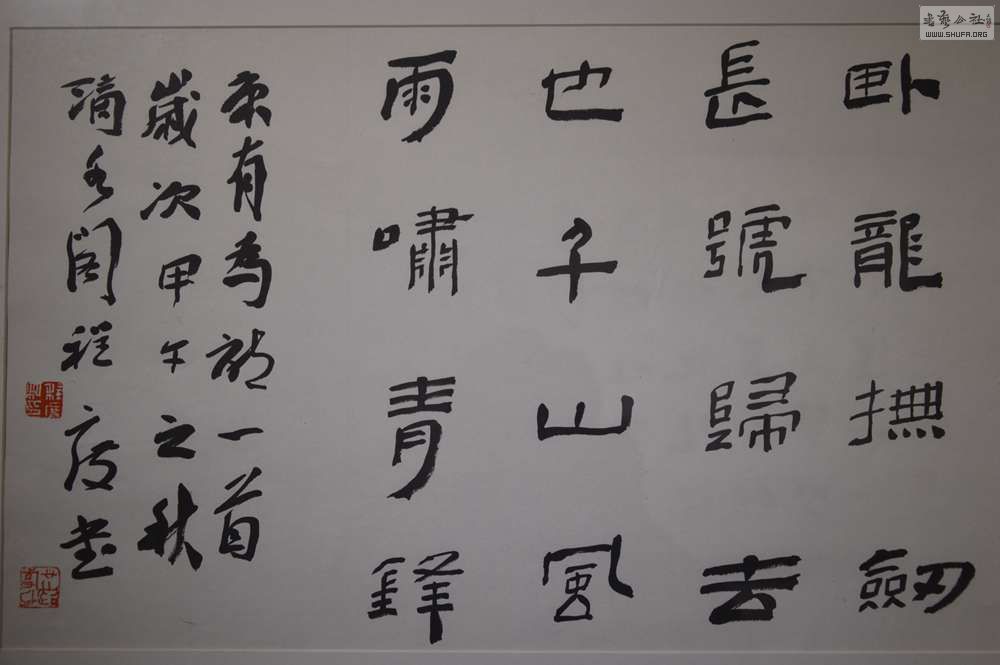 书艺公社
WWW.SHUFA.ORG
卧龍撫劒
長號歸去
也千山風
雨嘯青鋒
康有為詩一首
歲次甲午之秋
滴 閣程度書